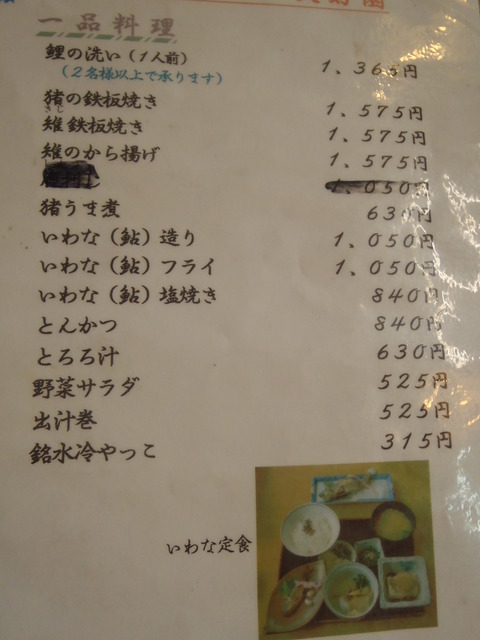 一品料理
鯉の洗い（1人前） 1、365円
（2名様以上で承ります）
猪の鉄板焼き 1、575円
きじ
雉鉄板焼き 1、575円
雉のから揚げ 1、575円
1、050円
猪うま煮 630円
いわな（鮎）造り 1、050円
いわな（鮎）フライ 1、050円
いわな（鮎）塩焼き 840円
とんかつ 840円
とろろ汁 630円
野菜サラダ 525円
出汁巻 525円
銘水冷やっこ 315円
いわな定食